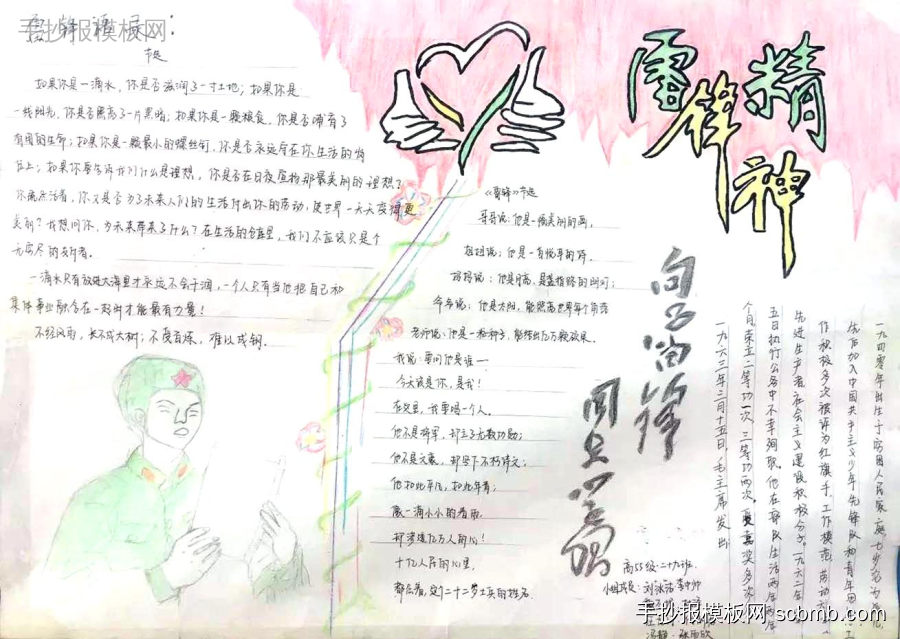 手抄报模板网
节选
如果你是一滴水，你是否滋润了一寸土地；如果你是
一线阳光，你是否照亮了一片黑暗；如果你是一颗粮食，你是否哺育了
有用的生命；如果你是一颗最小的螺丝钉，你是否永远守在你生活的岗
位上；如果你要告诉我们什么是理想，你是否在日夜宣扬那最美丽的理想？
你既然活着，你又是否为了未来人们的生活付出你的劳动，使世界一天天变得更
美丽？我想问你，为未来带来了什么？在生活的仓库里，我们不应该只是个
无穷尽的支付者。
一滴水只有放进大海里才永远不会干涸，一个人只有当他把自己和
集体事业融合在一起时才能最有力量！
不经风雨，长不成大树；不受百炼，难以成钢。
雷锋精神
《雷锋》节选
哥哥说：他是一幅美丽的画，
姐姐说：他是一首悦耳的诗。
爷爷说：他是太阳，能照亮世界每个角落
老师说：他是一粒种子，能结出亿万颗硕果。
我说：要问他是谁—
今天该是你，是我！
在这里，我要唱一个人。
他不是将军，却立了无数功勋；
他不是文豪，却写下不朽诗文；
他如此平凡，如此年青；
像一滴小小的春雨，
却渗进亿万人的心！
十亿人民的心里，
都念着，这个二十二岁士兵的姓名。
向雷锋
同志
一九四零年出生于
优后加入中国共产主义少年先锋队和青年团
作积极多次被评为红旗手、工作模范、劳动
先进生产者、社会主义建设积极分子。一九六二年
五日执行公务中不幸殉职，他在部队生活两年
个月荣立二等功一次，三等功两次，受嘉奖多次
一九六三年三月十五日，毛主席发出
高55级·二十九班
小组成员：刘泳洁
手抄报模板网 scbmb.com